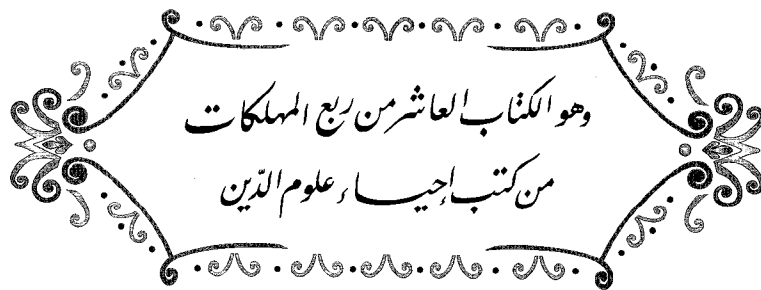 وهو الكتاب العاشر من ربع المهلكات
من كتب إحياء علوم الدّين